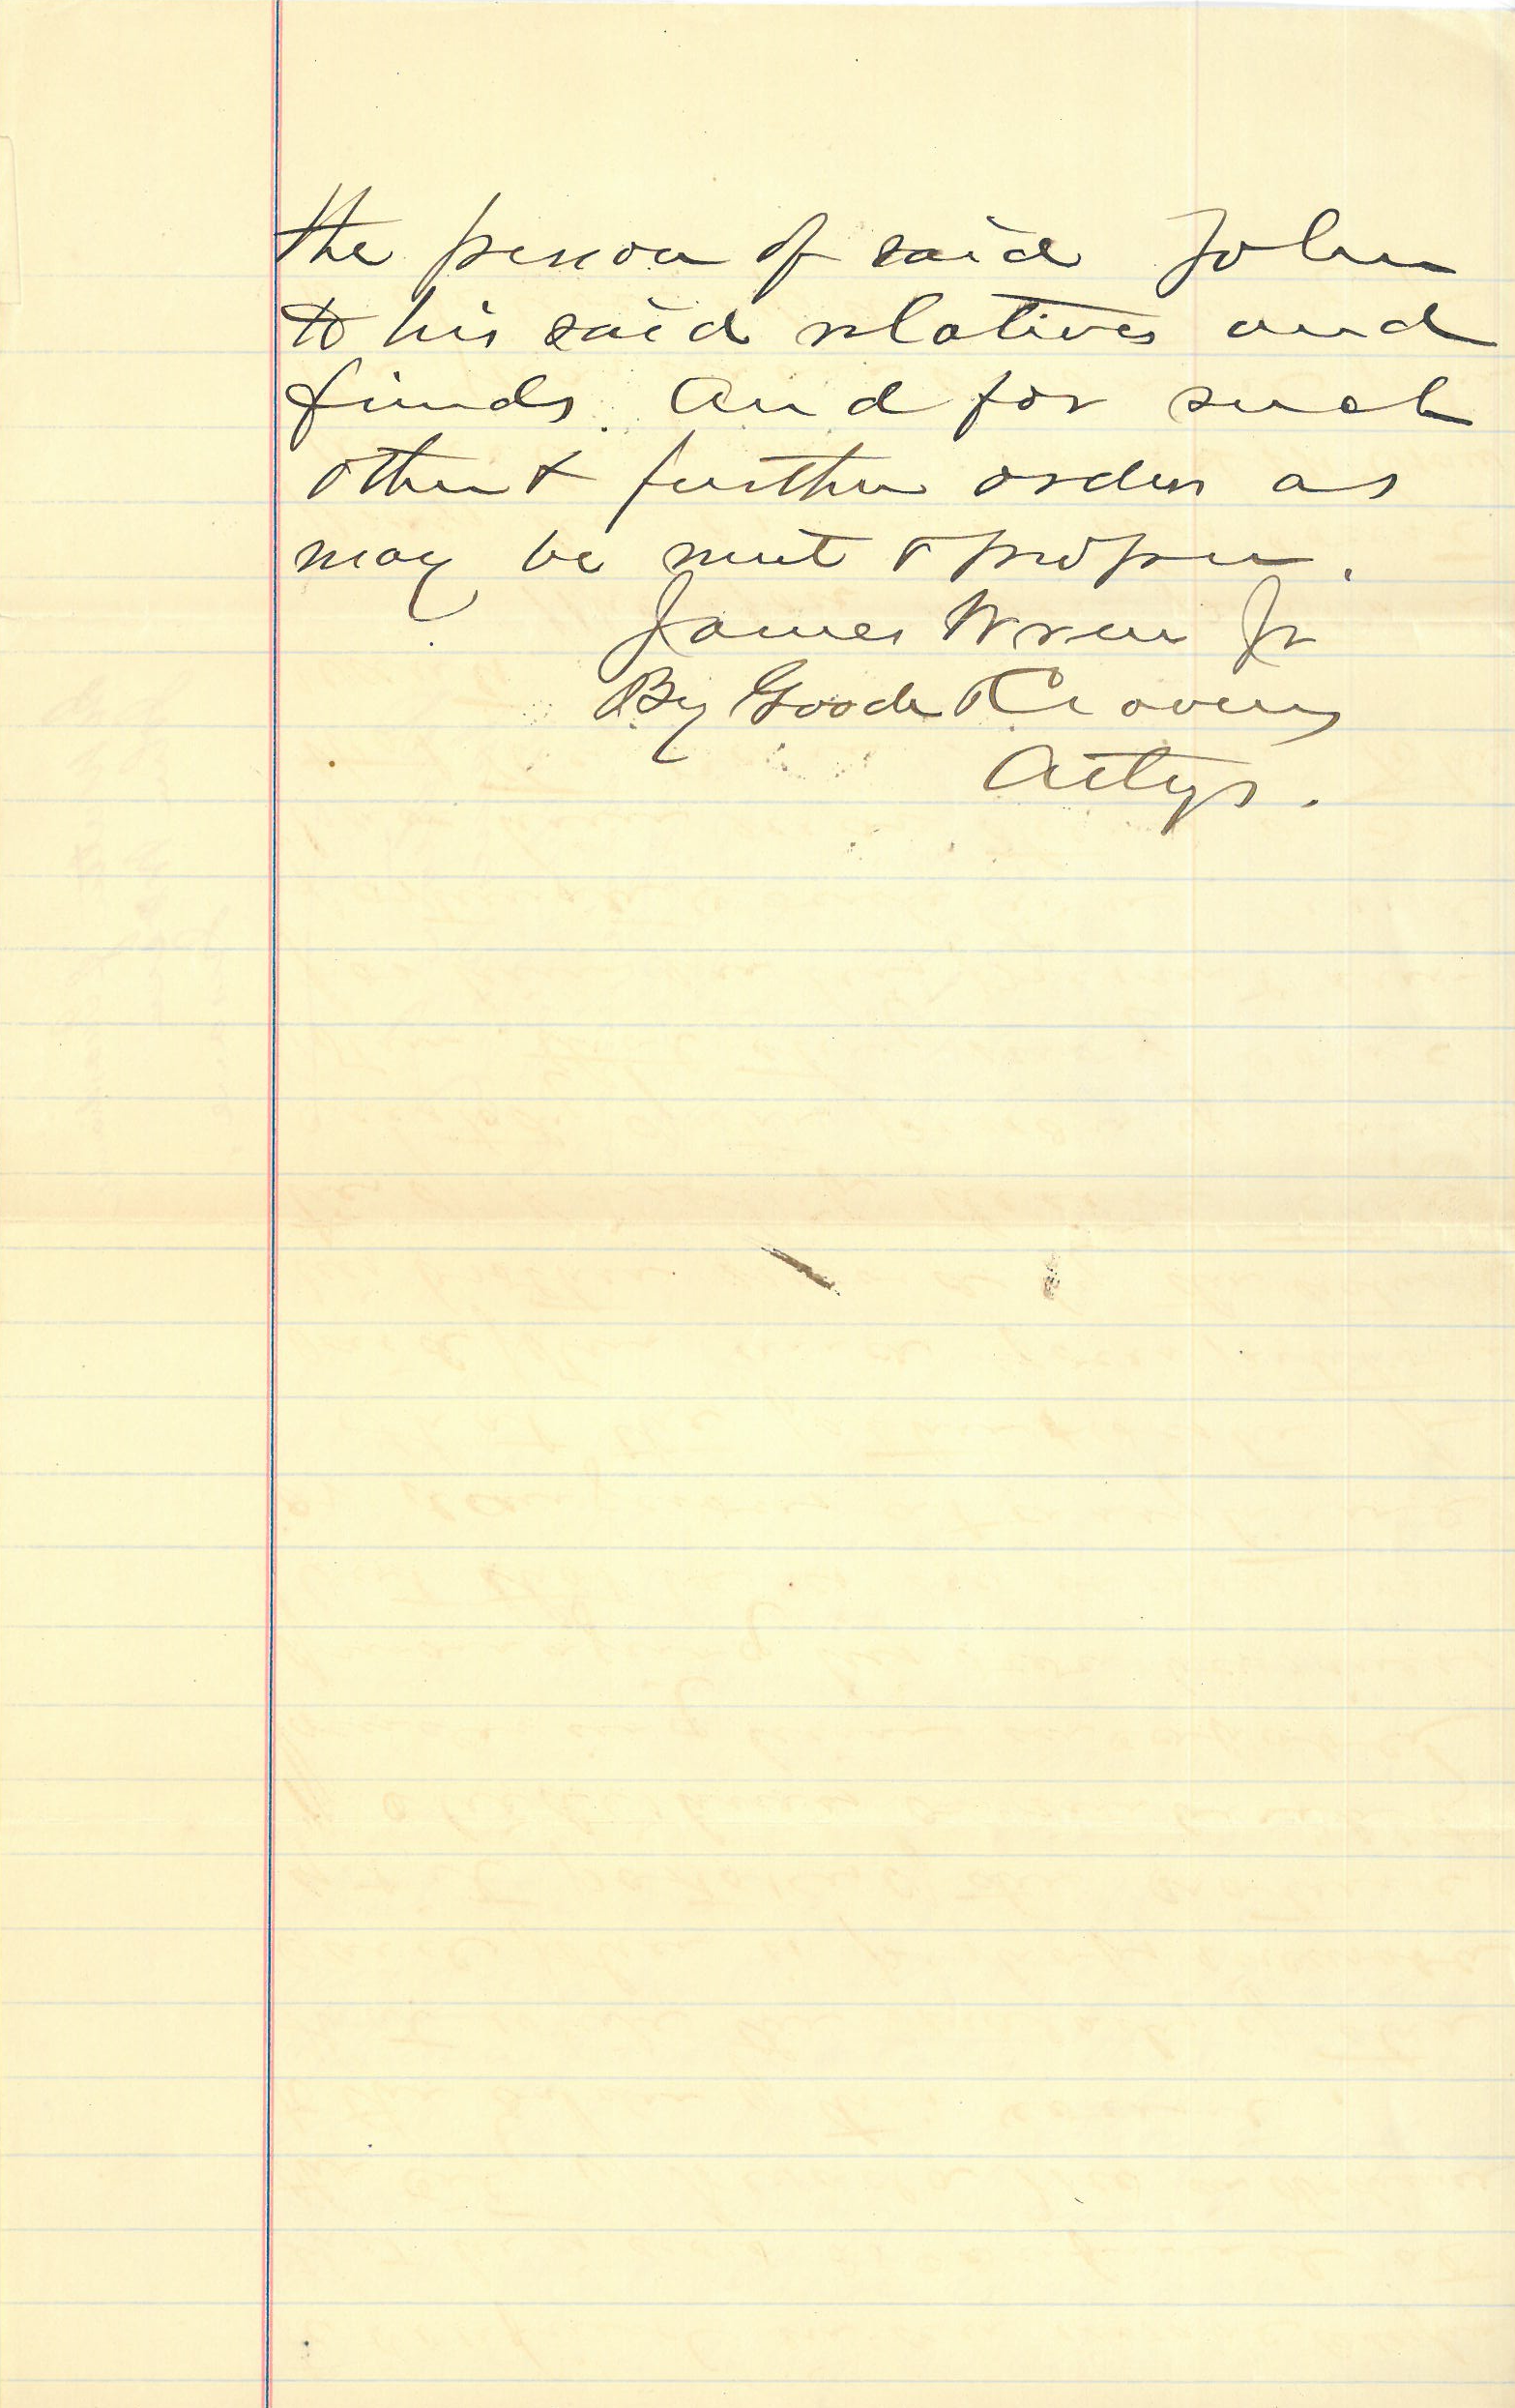 the person of said John
to his said relatives and
friends. And for such
other & further orders as
may be meet & proper.
James Wren Jr
By Goode & Cravens
Attys.